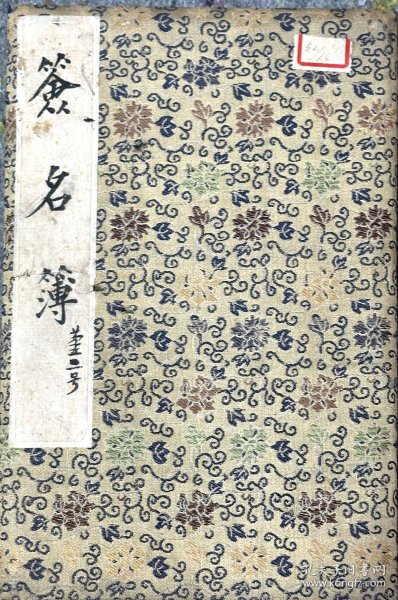 簽名簿
第二号
孔夫子旧书网
www.kongfz.com